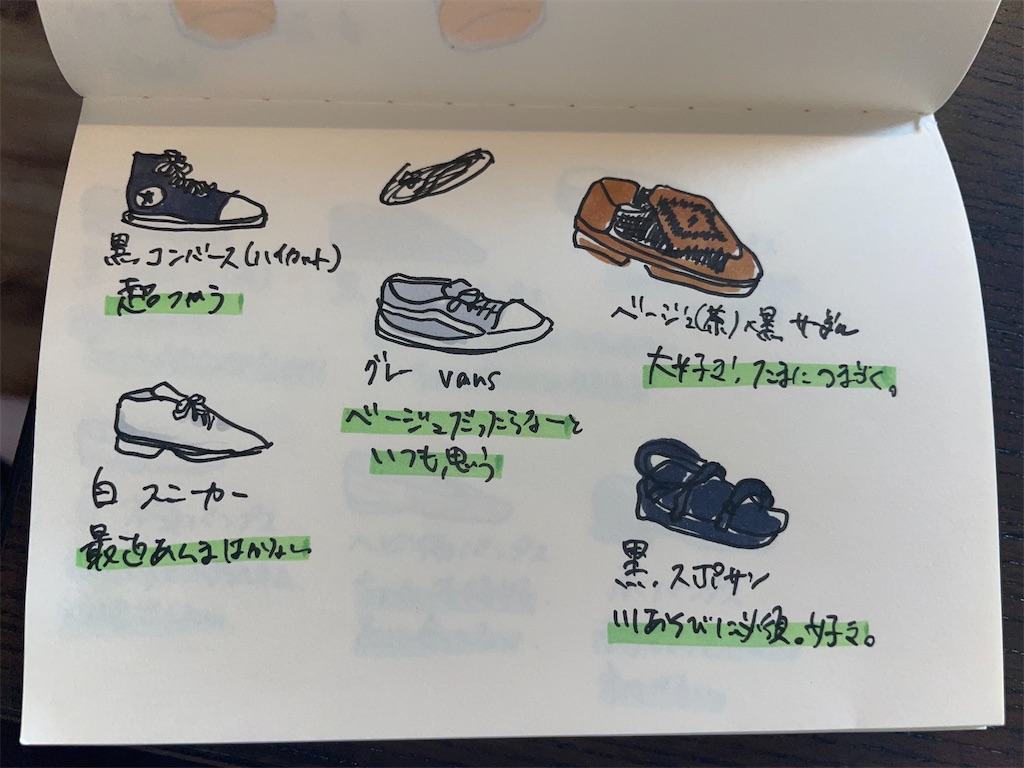 黒 コンバース(ハイカット)
超つかう
白 スニーカー
最近あんまはかない
グレー vans
ベージュだったらなーと
いつも思う
ベージュ(茶)×黒 サボ
大好き! たまにつまずく。
黒 スポサン
川あそびに必須。好き。